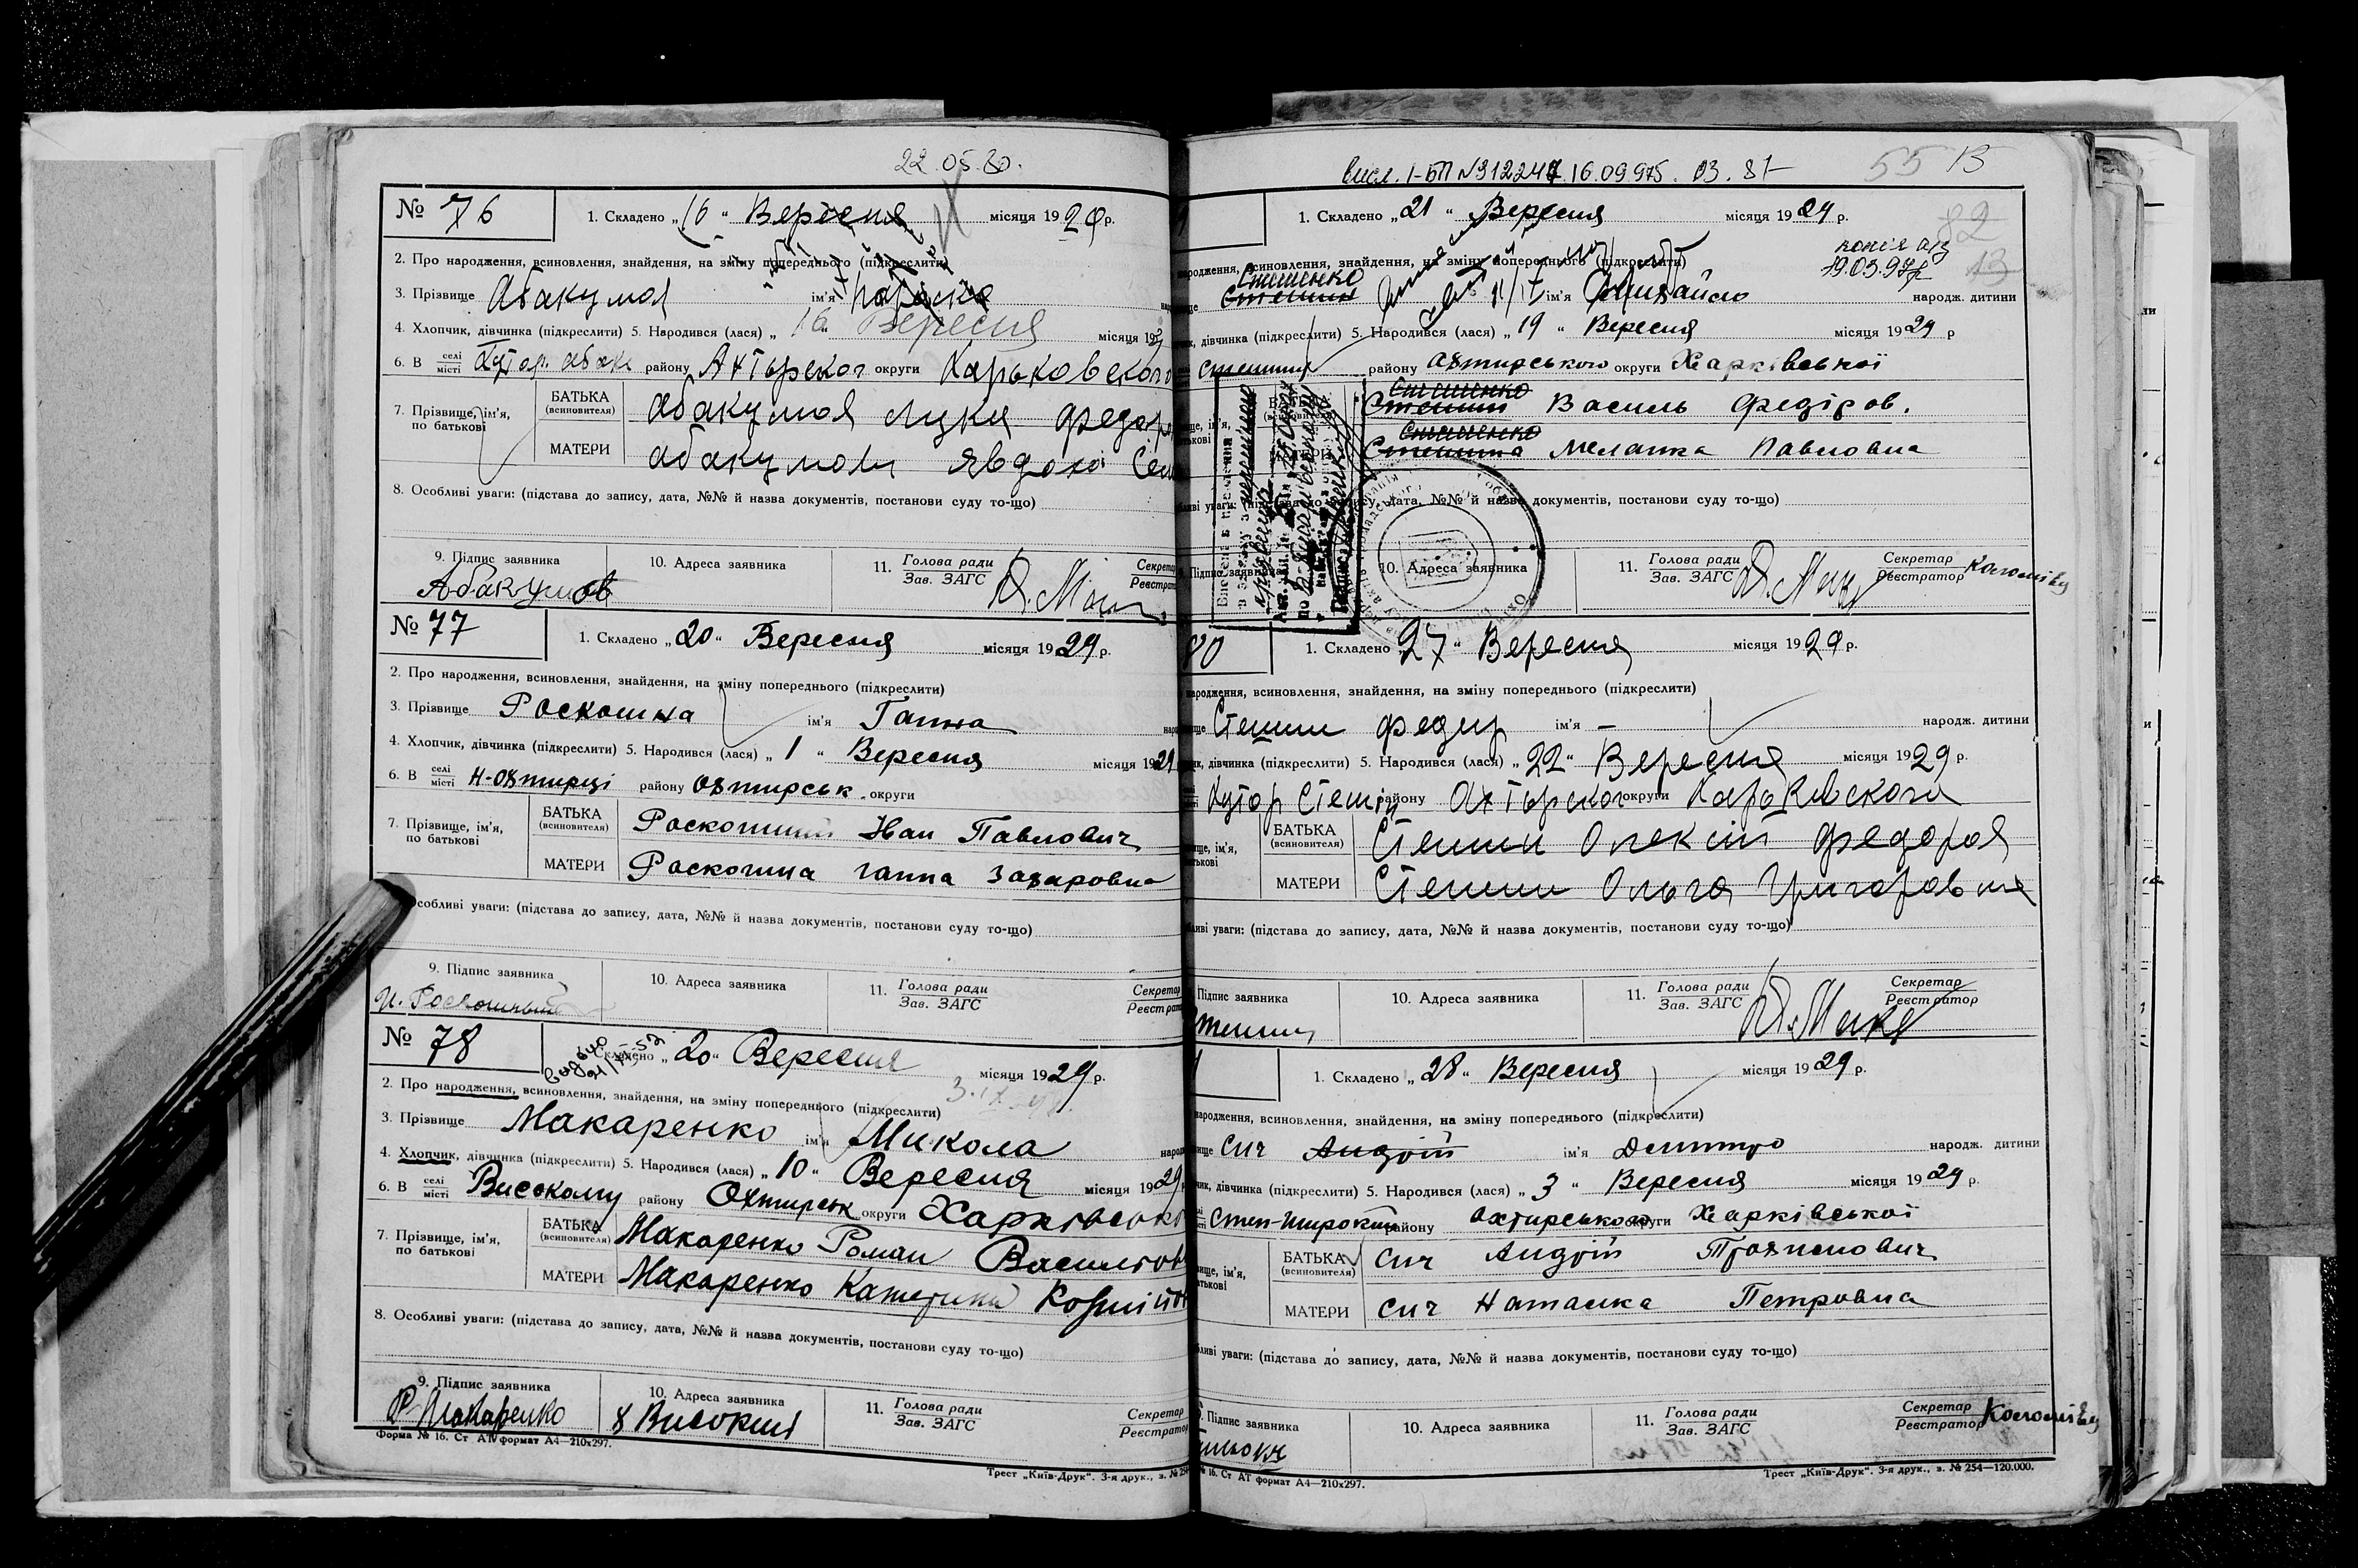 22.05.80.
№ 76
1. Складено „16" Вересня місяця 1929 р.
2. Про народження, всиновлення, знайдення, на зміну попереднього (підкреслити)
3. Прізвище Абакумов ім'я
4. Хлопчик, дівчинка (підкреслити) 5. Народився (лася) „16" Вересня місяця 19
6. В селі місті Хутор. Абаку району Ахтырског округи Харьковского
7. Прізвище, ім'я, по батькові
БАТЬКА (всиновителя) Абакумов Лука Федор
МАТЕРИ Абакумова Явдоха Сем
8. Особливі уваги: (підстава до запису, дата, №№ й назва документів, постанови суду то-що)
9. Підпис заявника Абакумов
10. Адреса заявника
11. Голова ради Зав. ЗАГС
№ 77
1. Складено „20" Вересня місяця 1929 р.
2. Про народження, всиновлення, знайдення, на зміну попереднього (підкреслити)
3. Прізвище Роскошна ім'я Ганна
4. Хлопчик, дівчинка (підкреслити) 5. Народився (лася) „1" Вересня місяця 1929
6. В селі місті Н-Охтирці району Охтирськ. округи
7. Прізвище, ім'я, по батькові
БАТЬКА (всиновителя) Роскошний Иван Павлович
МАТЕРИ Роскошна Ганна Захаровна
собливі уваги: (підстава до запису, дата, №№ й назва документів, постанови суду то-що)
9. Підпис заявника И. Роскошный
10. Адреса заявника
11. Голова ради Зав. ЗАГС
№ 78
Складено „20" Вересня місяця 1929 р.
2. Про народження, всиновлення, знайдення, на зміну попереднього (підкреслити)
3. Прізвище Макаренко ім'я Микола
4. Хлопчик, дівчинка (підкреслити) 5. Народився (лася) „10" Вересня місяця 1929
6. В селі місті Високому району Охтирськ округи Харківсько
7. Прізвище, ім'я, по батькові
БАТЬКА (всиновителя) Макаренко Роман Васильов
МАТЕРИ Макаренко Катерина
8. Особливі уваги: (підстава до запису, дата, №№ й назва документів, постанови суду то-що)
9. Підпис заявника Р Макаренко
10. Адреса заявника х Високий
11. Голова ради Зав. ЗАГС
Секретар Реєстратор
Форма № 16. Ст АТ формат А4—210х297.
Трест „Київ-Друк". 3-я друк., з. № 254
55
82
13
1. Складено „21" Вересня місяця 1929 р.
народження, всиновлення, знайдення, на зміну попереднього (підкреслити)
Степенко
Степин ім'я Михайло народж. дитини
дівчинка (підкреслити) 5. Народився (лася) „19" Вересня місяця 1929 р
району Охтирського округи Харківської
Василь Федіров.
Меланка Павловна
уваги: дата, №№ й назва документів, постанови суду то-що)
10. Адреса заявника
11. Голова ради Зав. ЗАГС
Секретар Реєстратор
80
1. Складено „27" Вересня місяця 1929 р.
народження, всиновлення, знайдення, на зміну попереднього (підкреслити)
Степин Федир ім'я — народж. дитини
дівчинка (підкреслити) 5. Народився (лася) „22" Вересня місяця 1929 р.
Хутор Степин району Ахтырского округи Харьковского
БАТЬКА (всиновителя) Степин Олексій Федоров
МАТЕРИ Степин Ольга Григоровна
уваги: (підстава до запису, дата, №№ й назва документів, постанови суду то-що)
Підпис заявника
10. Адреса заявника
11. Голова ради Зав. ЗАГС
Секретар Реєстратор
1. Складено „28" Вересня місяця 1929 р.
народження, всиновлення, знайдення, на зміну попереднього (підкреслити)
Сич Андрій ім'я Дмитро народж. дитини
дівчинка (підкреслити) 5. Народився (лася) „3" Вересня місяця 1929 р.
району Охтирського округи Харківської
БАТЬКА (всиновителя) Сич Андрій Трохимович
МАТЕРИ Сич Наталка Петровна
уваги: (підстава до запису, дата, №№ й назва документів, постанови суду то-що)
Підпис заявника
10. Адреса заявника
11. Голова ради Зав. ЗАГС
Секретар Реєстратор
№ 16. Ст АТ формат А4—210х297.
Трест „Київ-Друк". 3-я друк., з. № 254—120.000.